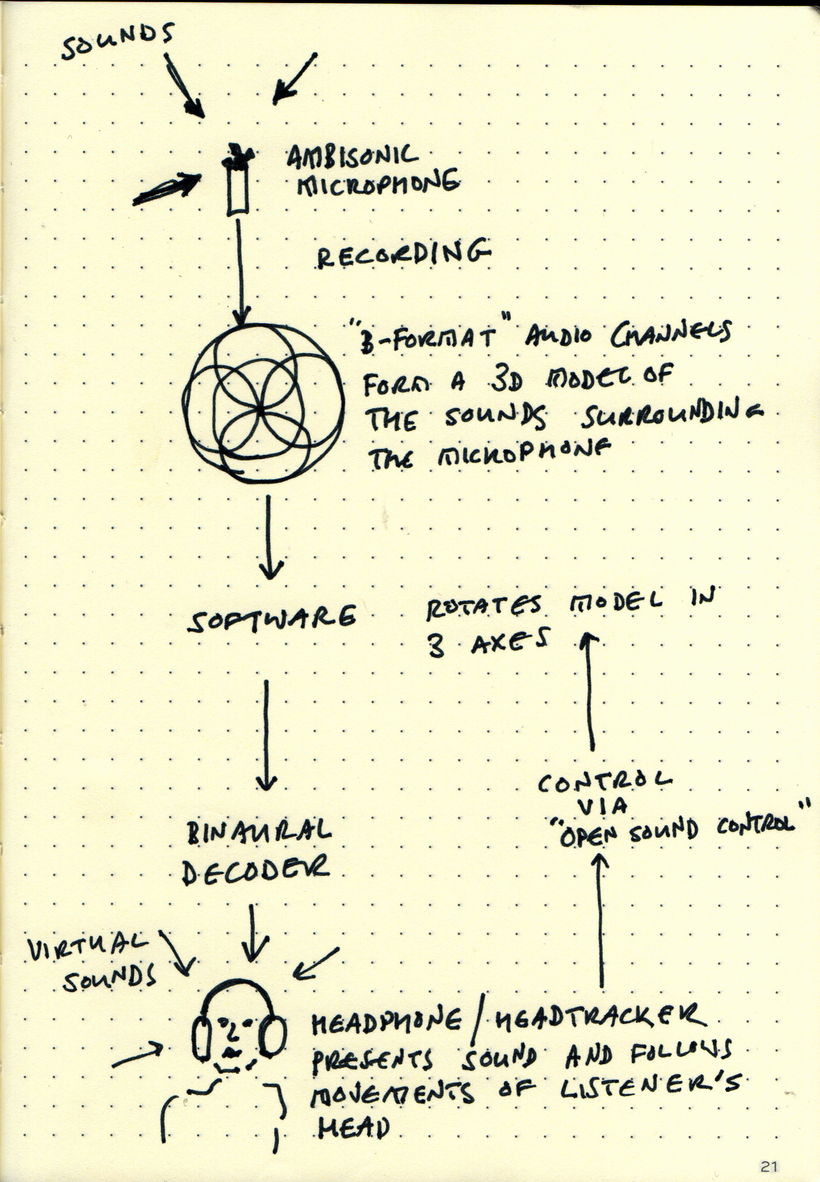 SOUNDS
AMBISONIC
MICROPHONE
RECORDING
"B-FORMAT" AUDIO CHANNELS
FORM A 3D MODEL OF
THE SOUNDS SURROUNDING
THE MICROPHONE
SOFTWARE
ROTATES MODEL IN
3 AXES
CONTROL
VIA
"OPEN SOUND CONTROL"
BINAURAL
DECODER
VIRTUAL
SOUNDS
HEADPHONE/HEADTRACKER
PRESENTS SOUND AND FOLLOWS
MOVEMENTS OF LISTENER'S
HEAD
21